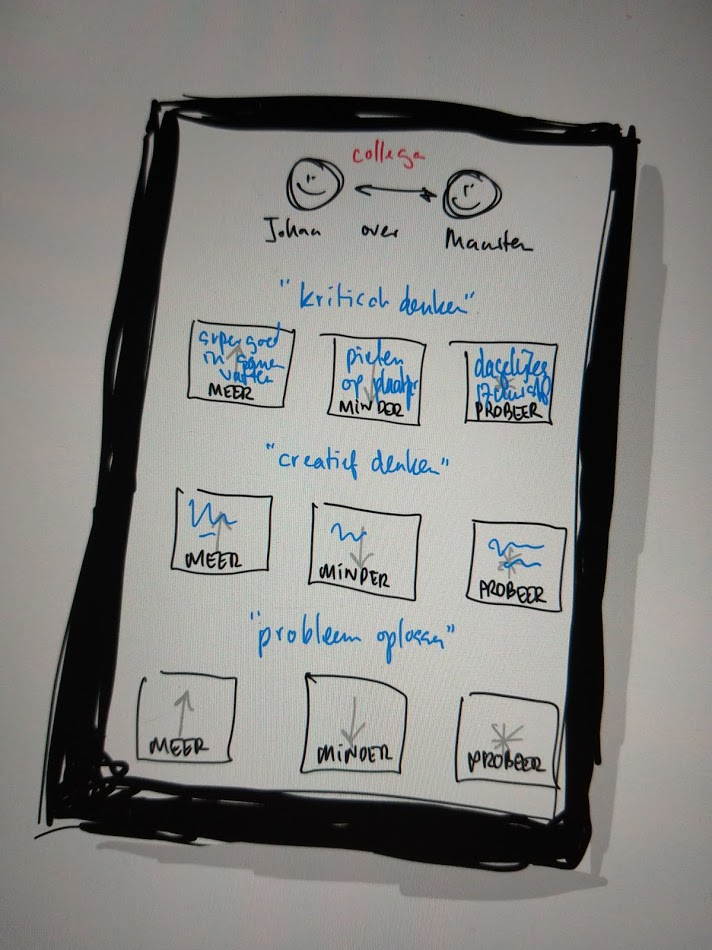 collega
Johan over Maarten
"kritisch denken"
super goed
in samen
vatten
MEER
MINDER
dagelijks
PROBEER
"creatief denken"
MEER
MINDER
PROBEER
"probleem oplossen"
MEER
MINDER
PROBEER